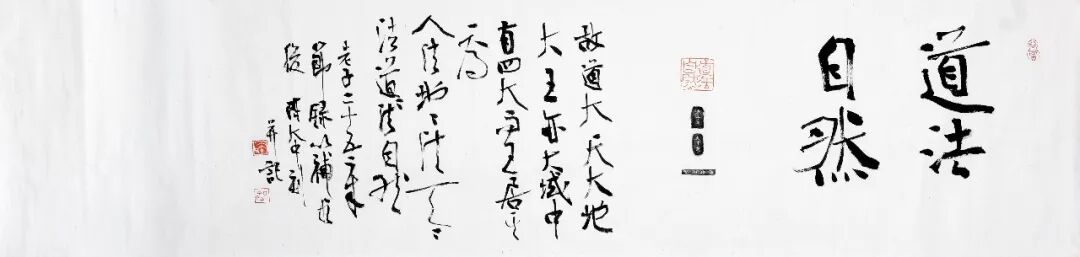 道法
自然
故道大天大地
大王亦大域中
有四大而王居其
一焉
人法地〻法天〻
法道〻法自然
老子二十五章
節録以補
并記